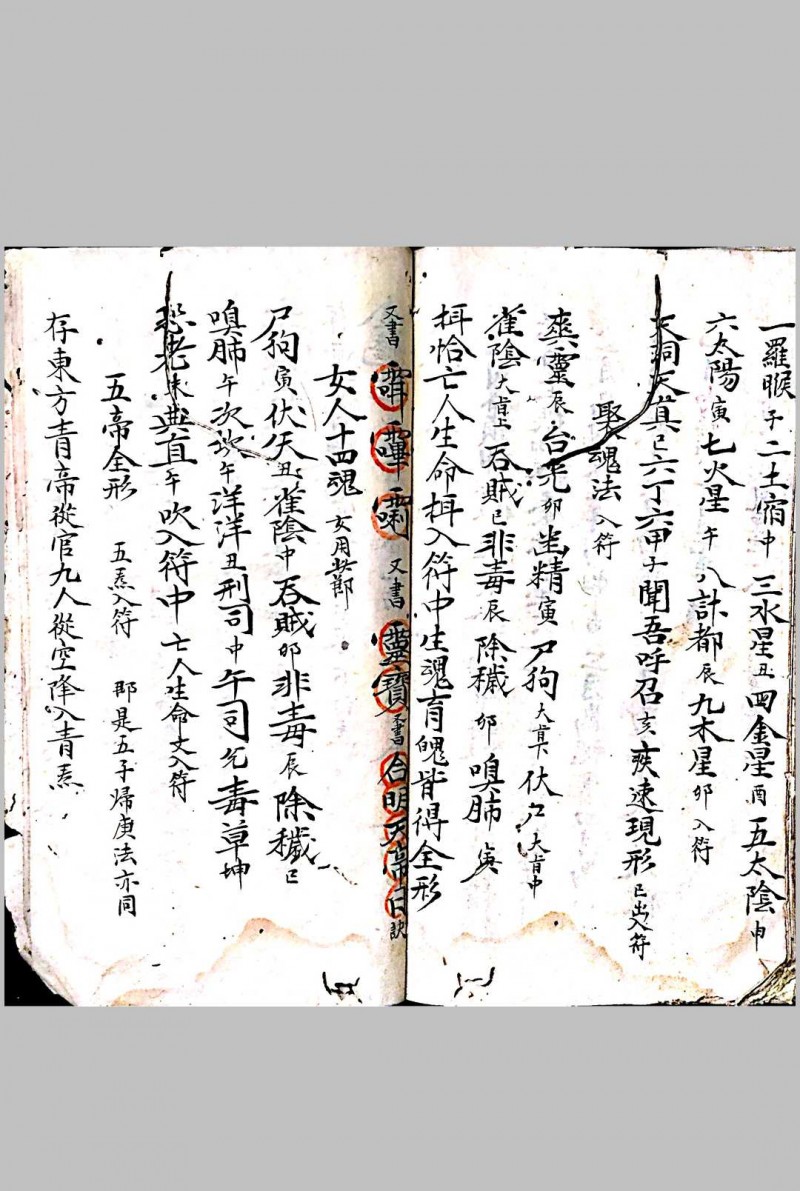 一羅睺子二土宿中三水星丑四金星酉五太陰申
六太陽寅七火星午八計都辰九木星卯入符
天洞天真巳六丁六甲子聞吾呼召亥疾速現形巳出入符
娶魂法入符
爽靈辰台光卯幽精寅尸狗大真伏尸大肯中
雀陰大肯上吞賊巳非毒辰除穢卯嗅肺寅
拑恰亡人生命拑入符中生魂育魄皆得全形
又書 又書靈寶又書合明天帝日訣
女人十四魂女用此部
尸狗寅伏天丑雀陰中吞賊卯非毒辰除穢巳
嗅肺午次此午洋洋丑刑司中午司乞毒章坤
老未典直午吹入符中亡人生命文入符
五帝全形 五炁入符 即是五子歸庚法亦同
存東方青帝從官九人從空降入青炁